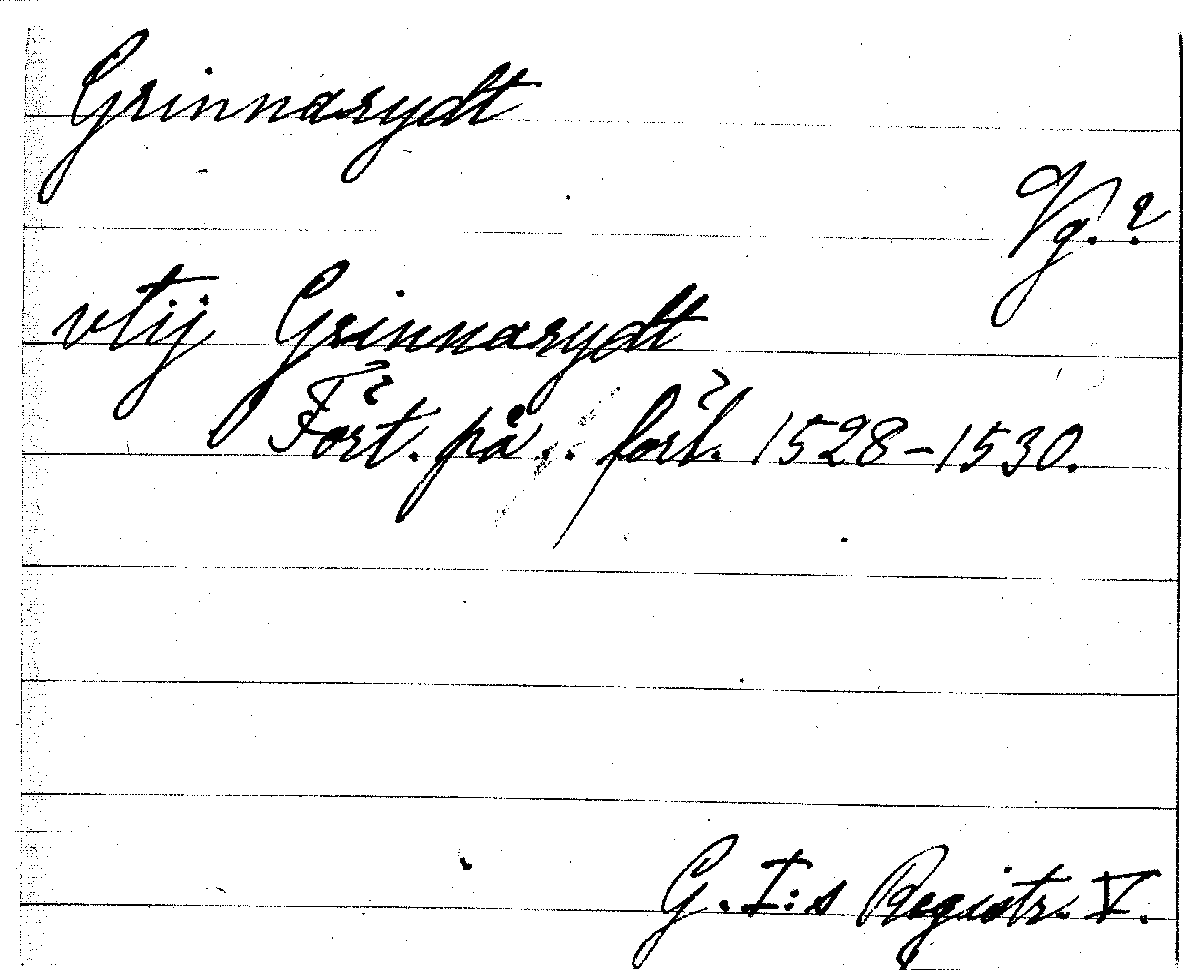 Grinnarydt
Vg.?
vtij Grinnarydt
Fört. på .. förl. 1528-1530.
G. I:s Registr. V.